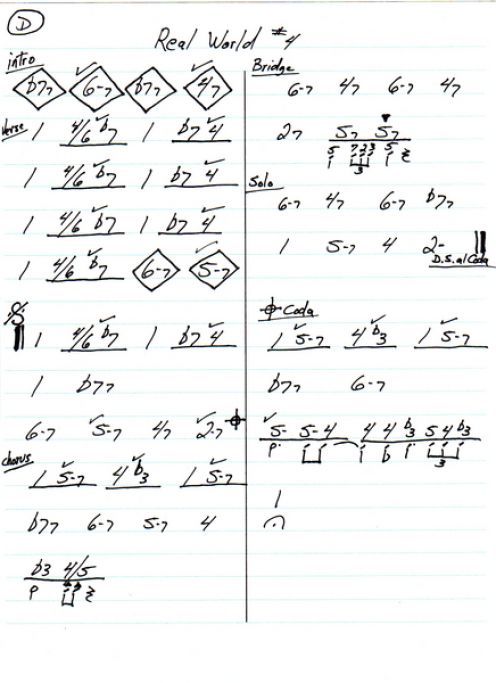 D
Real World #4
intro
b77 6-7 b77 47
Verse 1 4/6 b7 1 b7 4
1 4/6 b7 1 b7 4
1 4/6 b7 1 b7 4
1 4/6 b7 6-7 5-7
1 4/6 b7 1 b7 4
1 b77
6-7 5-7 47 2-7
Chorus
1 5-7 4 b3 1 5-7
b77 6-7 5-7 4
b3 4/5
Bridge
6-7 47 6-7 47
27 57 57
3
Solo
6-7 47 6-7 b77
1 5-7 4 2-
D.S. al Coda
Coda
1 5-7 4 b3 1 5-7
b77 6-7
5- 5-4 4 4 b3 5 4 b3
3
1